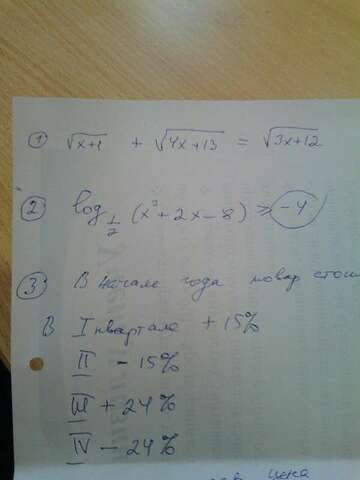 ① √x+1 + √4x+13 = √3x+12
② log 1/2 (x² + 2x - 8) ≥ -4
③ В начале года товар стои
В I квартале + 15%
II - 15%
III + 24%
IV - 24%
цена